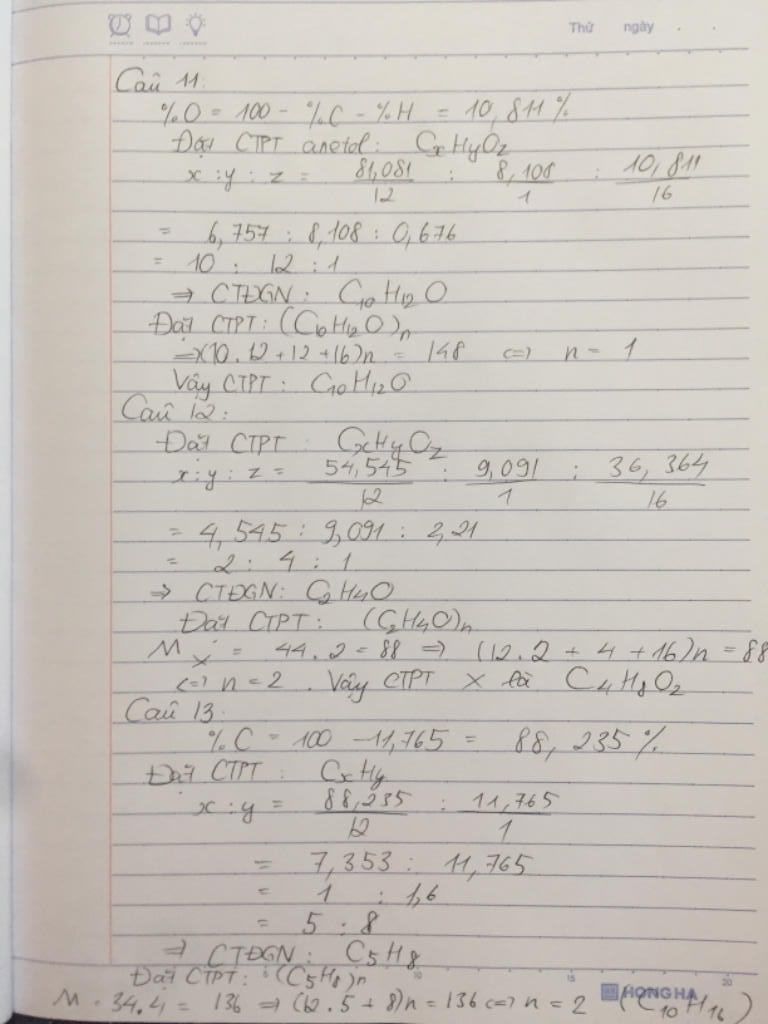 Thứ ngày . .
Câu 11:
%O = 100 - %C - %H = 10,811%
Đặt CTPT anetol: CxHyOz
x : y : z = 81,081/12 : 8,108/1 : 10,811/16
= 6,757 : 8,108 : 0,676
= 10 : 12 : 1
⇒ CTĐGN: C10H12O
Đặt CTPT: (C10H12O)n
⇒ (10.12 + 12 + 16)n = 148 <=> n = 1
Vậy CTPT: C10H12O
Câu 12:
Đặt CTPT : CxHyOz
x : y : z = 54,545/12 : 9,091/1 : 36,364/16
= 4,545 : 9,091 : 2,21
= 2 : 4 : 1
⇒ CTĐGN: C2H4O
Đặt CTPT: (C2H4O)n
Mx = 44.2 = 88 ⇒ (12.2 + 4 + 16)n = 88
<=> n = 2 . Vậy CTPT X là C4H8O2
Câu 13:
%C = 100 - 11,765 = 88,235%
Đặt CTPT : CxHy
x : y = 88,235/12 : 11,765/1
= 7,353 : 11,765
= 1 : 1,6
= 5 : 8
⇒ CTĐGN: C5H8
Đặt CTPT: (C5H8)n
10 15 20
M = 34.4 = 136 ⇒ (12.5 + 8)n = 136 <=> n = 2 (C10H16)
HONG HA